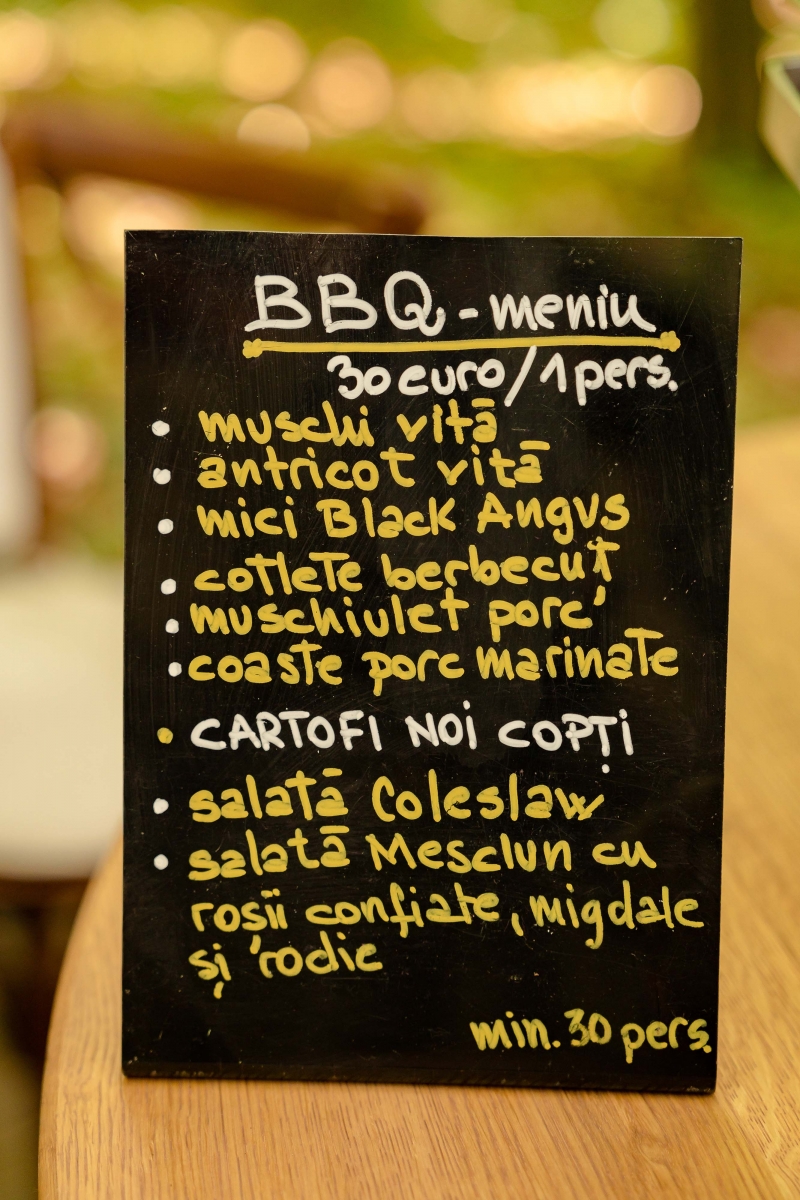 BBQ - meniu
30 euro/1 pers.
• muschi vită
• antricot vită
• mici Black Angus
• cotlete berbecuț
• muschiulet porc
• coaste porc marinate
• CARTOFI NOI COPȚI
• salată Coleslaw
• salată Mesclun cu
rosii confiate, migdale
și rodie
min. 30 pers.